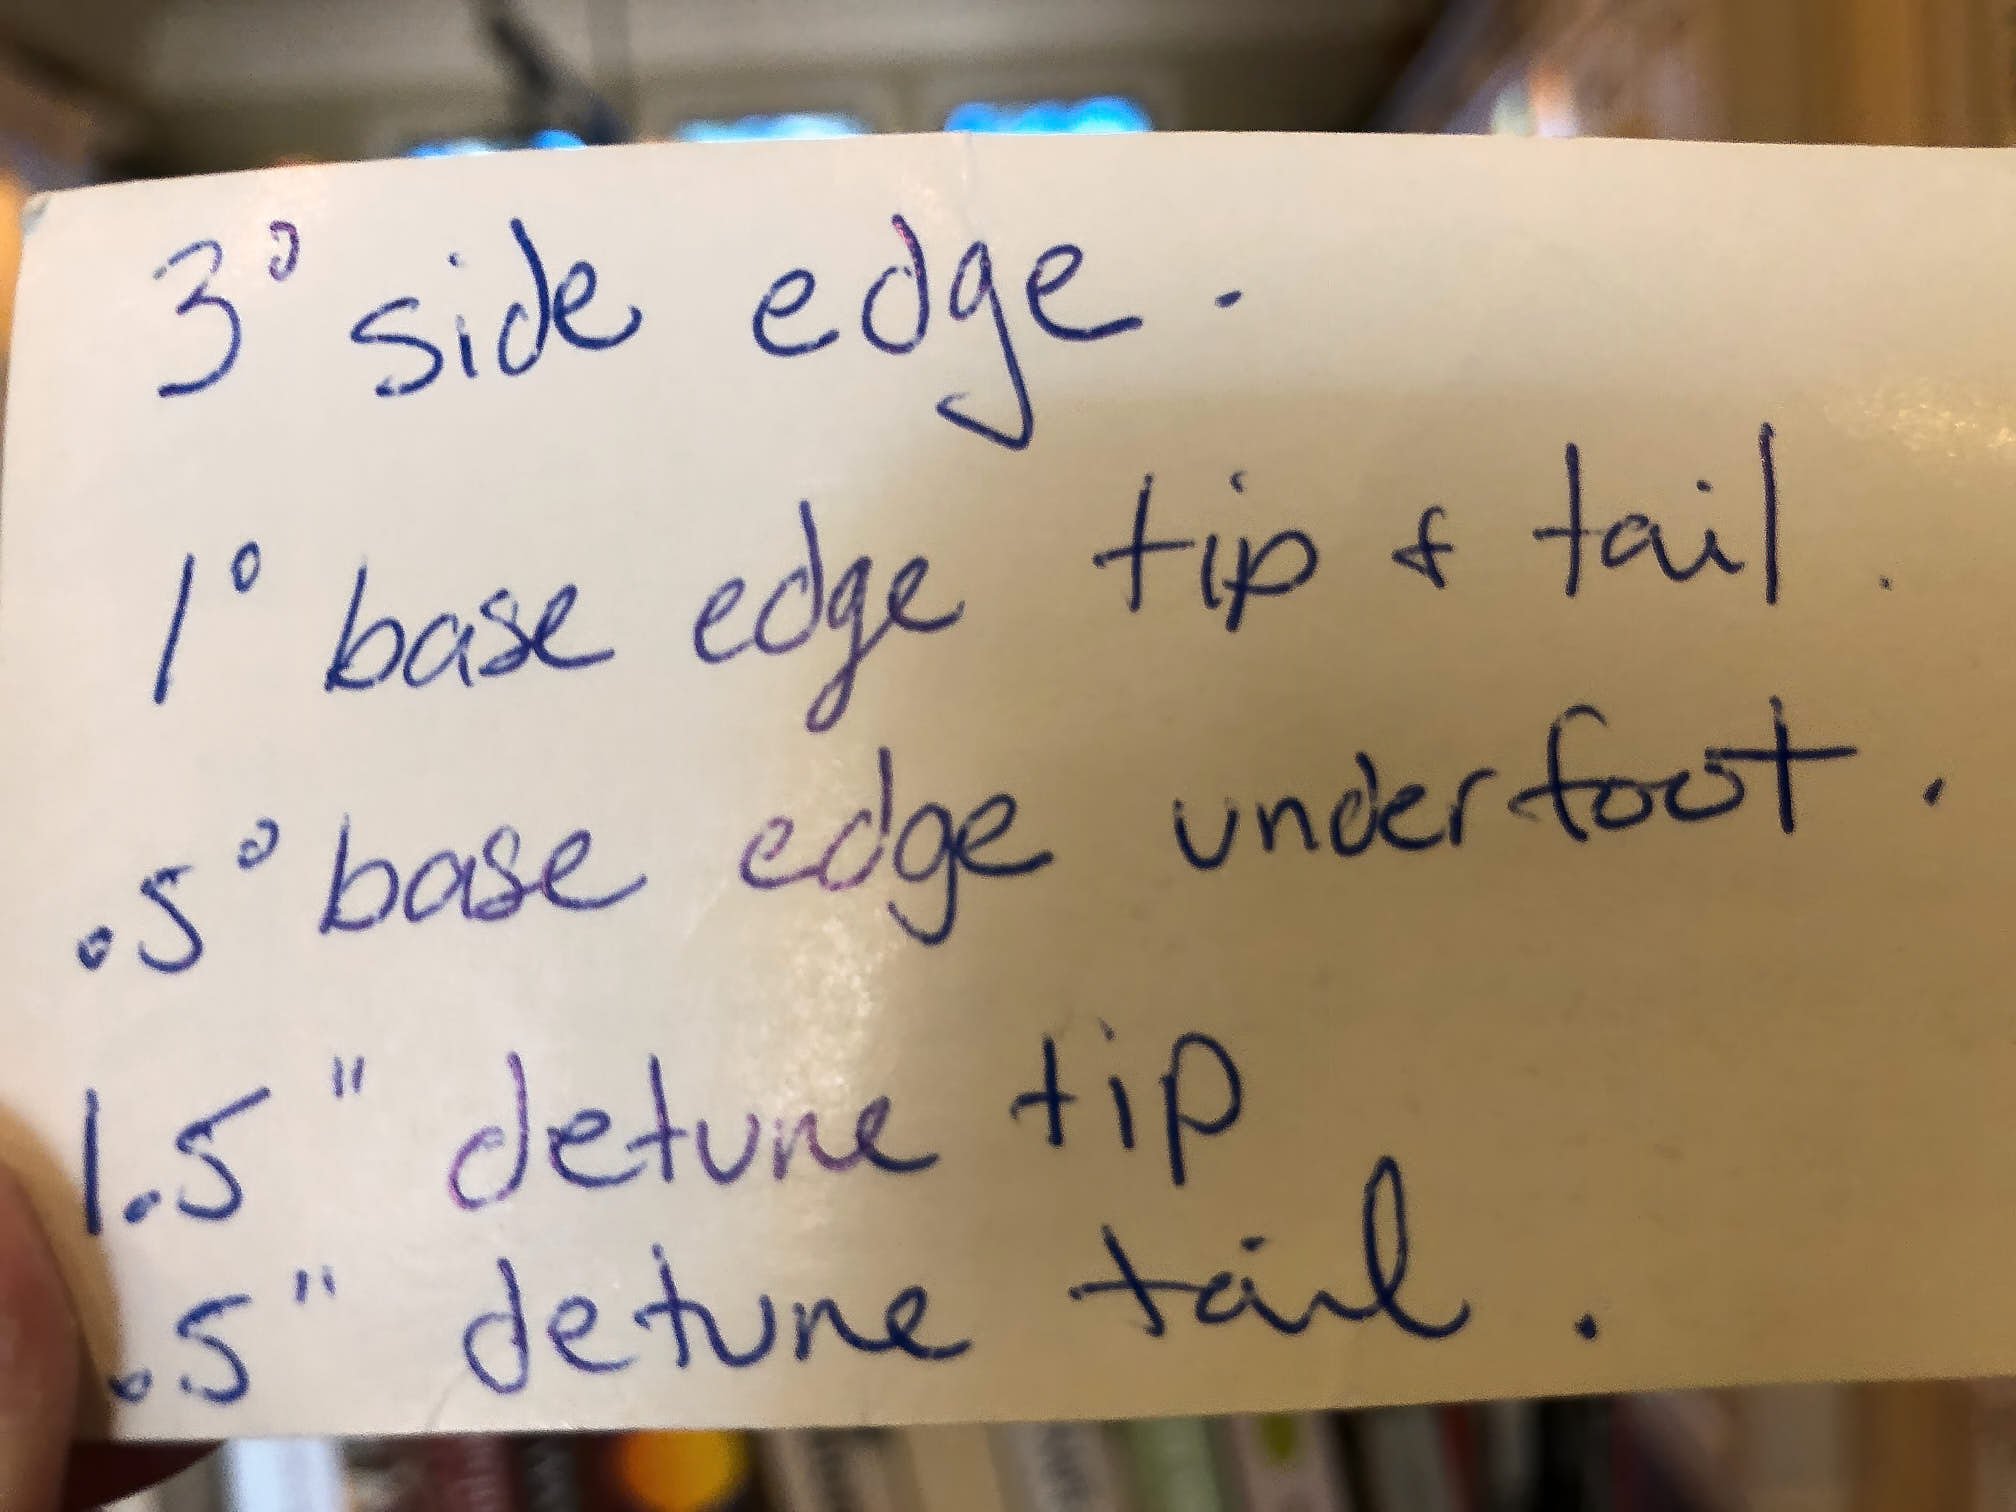 3° side edge.
1° base edge tip & tail.
.5° base edge underfoot.
1.5" detune tip
.5" detune tail.